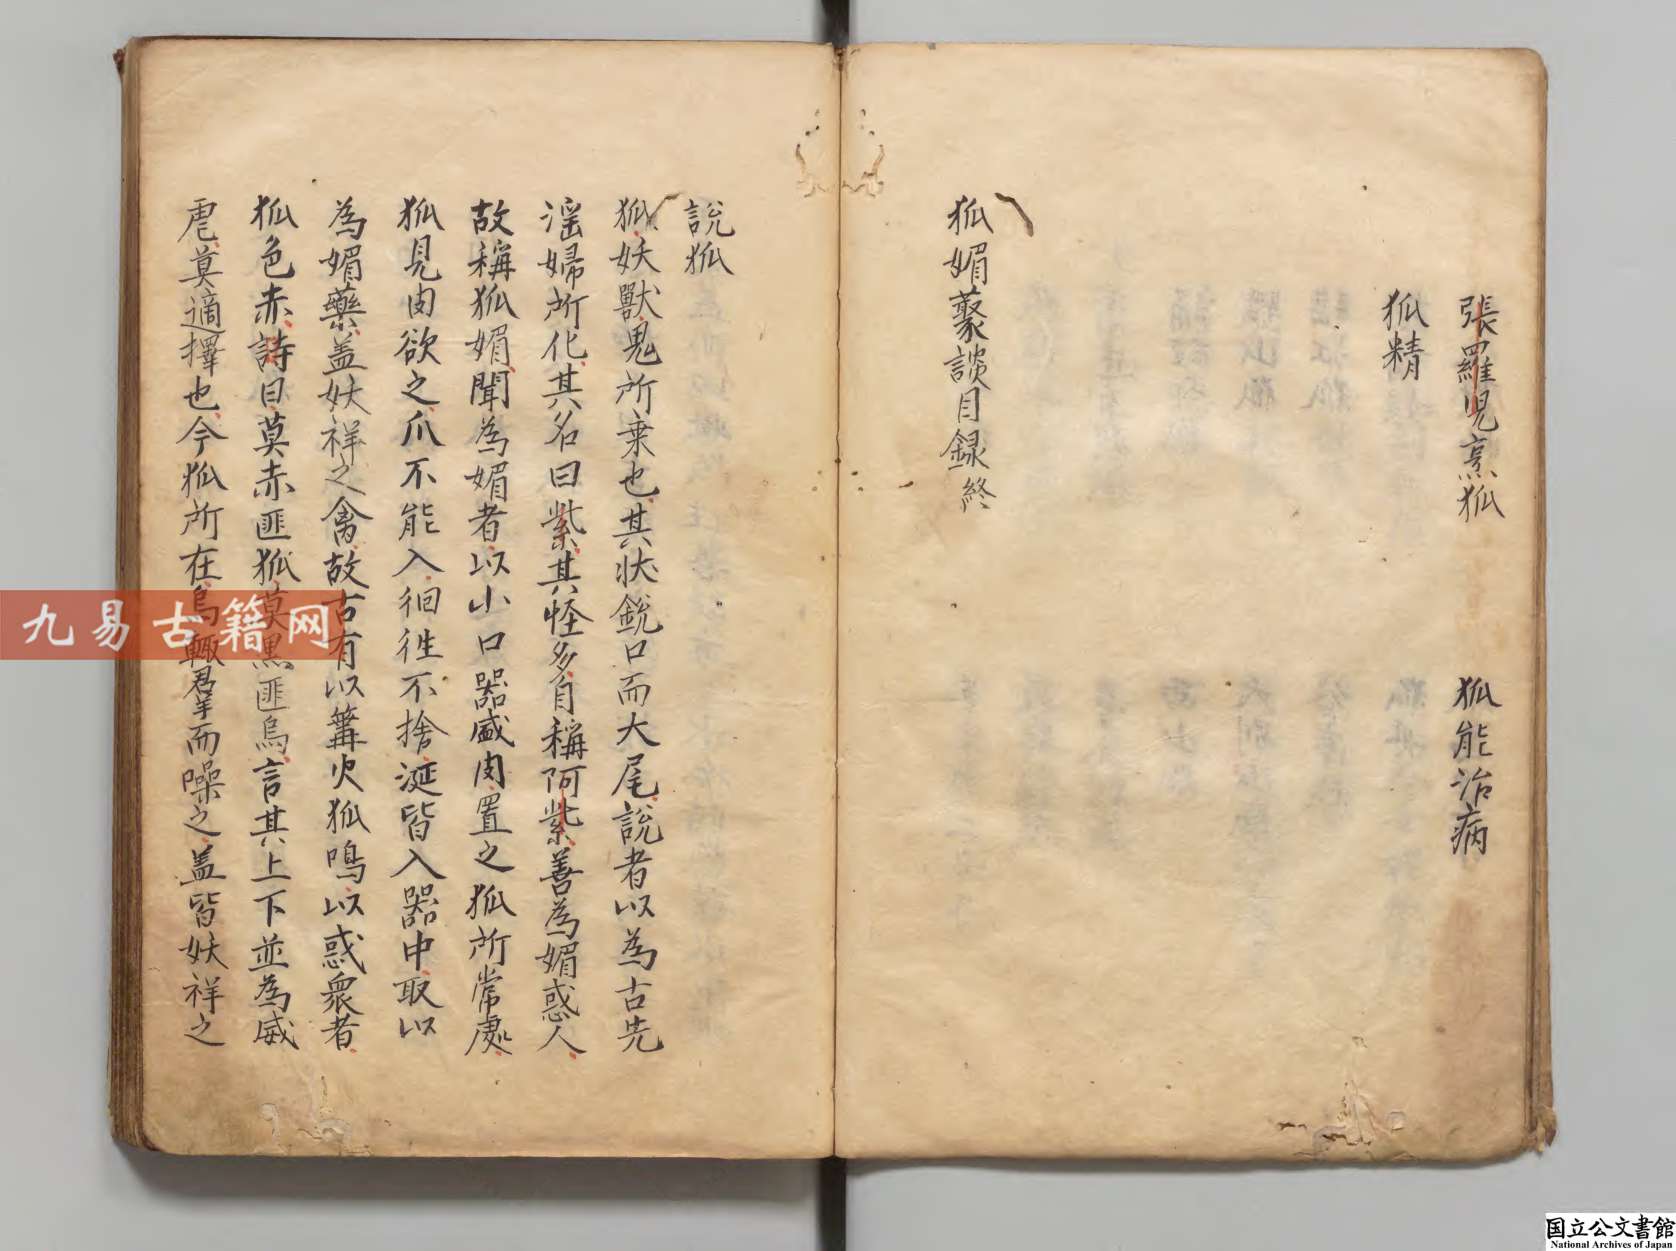 張羅児烹狐
狐能治病
狐精
狐媚藂談目録終
說狐
狐妖獸鬼所乗也其狀銳口而大尾說者以為古先
滛婦所化其名曰紫其怪多自稱阿紫善為媚惑人
故稱狐媚聞為媚者以小口器盛肉置之狐所常處
狐見肉欲之爪不能入徊徃不捨涎皆入器中取以
為媚藥盖妖祥之禽故古有以篝火狐鳴以惑衆者
狐色赤詩曰莫赤匪狐莫黒匪烏言其上下並為威
虐莫適擇也今狐所在烏輙羣而噪之盖皆妖祥之
九易古籍网
国立公文書館
National Archives of Japan